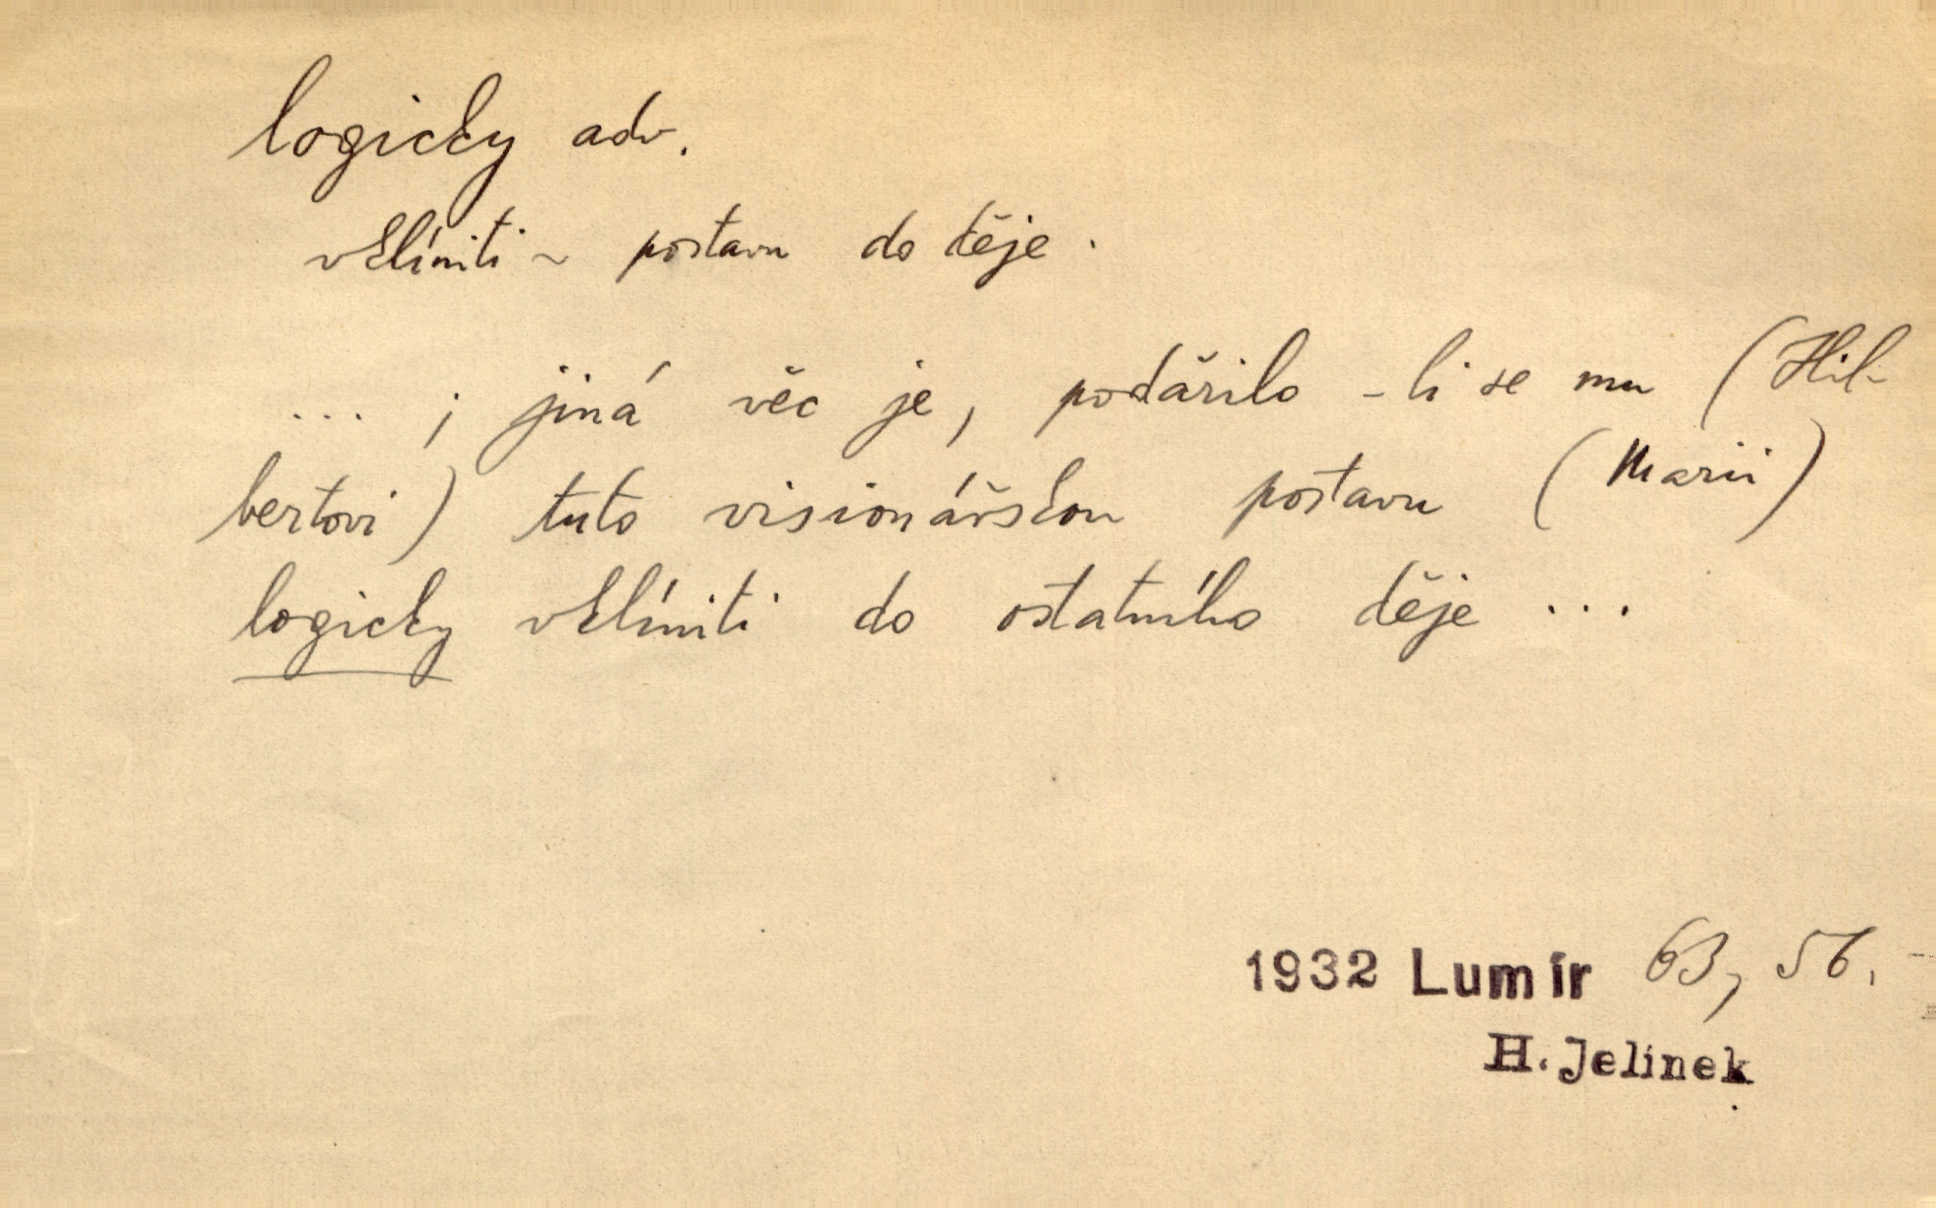 logicky adv.
vklíniti ~ postavu do děje.
... ; jiná věc je, podařilo-li se mu (Hil-
bertovi) tuto visionářskou postavu (Marii)
logicky vklíniti do ostatního děje ...
1932 Lumír 63, 56.
H. Jelínek